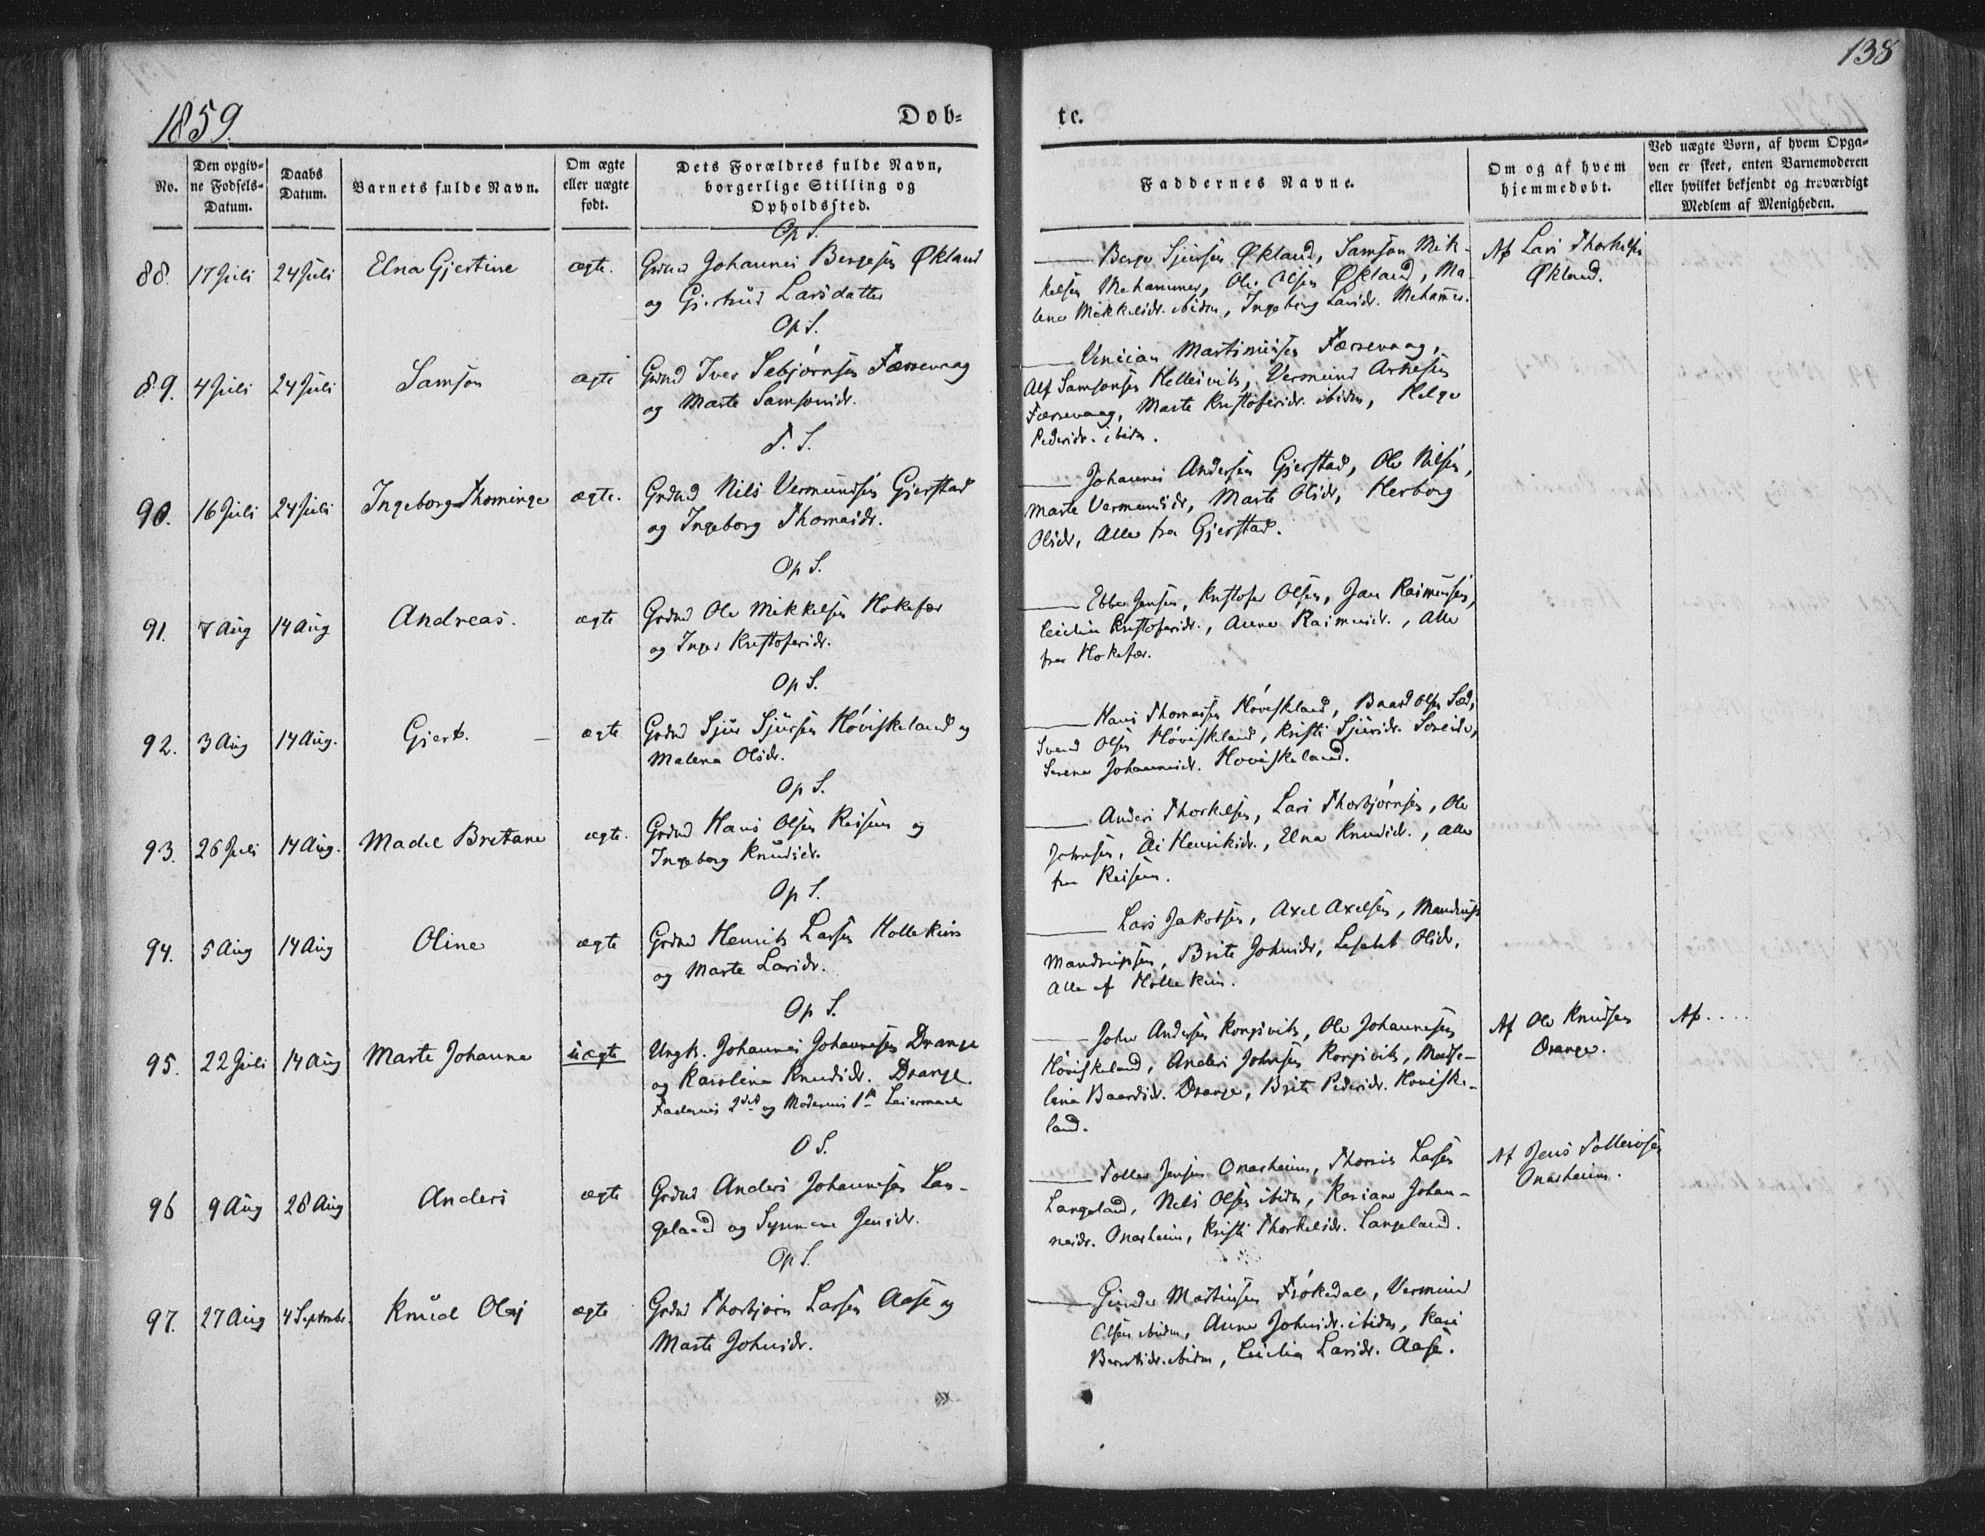 138
1859.
Døb-
te.
No.
Den opgiv-
ne Fødsels-
Datum.
Daabs
Datum.
Barnets fulde Navn.
Om ægte
eller uægte
født.
Dets Forældres fulde Navn,
borgerlige Stilling og
Opholdssted.
Faddernes Navne.
Om og af hvem
hjemmedøbt.
Ved uægte Børn, af hvem Opga-
ven er skeet, enten Barnemoderen
eller hvilket bekjendt og troværdigt
Medlem af Menigheden.
Op S.
88. 17 Juli 24 Juli Elna Gjertine ægte. Grdmd Johannes Bergesen Økland
og Gjertrud Larsdatter
Berge Sjursen Økland, Samson Mik-
kelsen Mehammer, Ole Olsen Økland, Ma-
lena Mikkelsdr. ibidm, Ingeborg Larsdr. Mehamer.
Af Lars Thorkelsen
Økland.
Op S.
89. 4 Juli 24 Juli Samson ægte Grdmd Iver Sebjørnsen Færevaag
og Marte Samsonsdr.
Martinusen Færevaag,
Alf Samsonsen Hellesvik, Vermund Arnesen
Færevaag, Marte Kristofersdr. ibidm, Helge
Pedersdr. ibidm.
T. S.
90. 16 Juli 24 Juli Ingeborg Thominge ægte. Grdmd Nils Vermundsen Gjerstad
og Ingeborg Thomasdr.
Johannes Andersen Gjerstad, Ole Nilsen,
Marte Vermundsdr, Marte Olsdr, Herborg
Olsdr, Alle fra Gjerstad.
Op S.
91. 7 Aug 14 Aug Andreas. ægte Grdmd Ole Mikkelsen Hokefær
og Inger Kristofersdr.
Ebbe Jensen, Kristofer Olsen, Jan Rasmusen,
Cecilia Kristofersdr., Anna Rasmusdr., Alle
fra Hokefær.
Op S.
92. 3 Aug 14 Aug. Gjert. ægte Grdmd Sjur Sjursen Høviskeland og
Malena Olsdr.
Hans Thomassen Høviskeland, Baard Olsen Sæd,
Svend Olsen Høviskeland, Kristi Sjursdr. Soreide,
Serena Johannesdr. Hoviskeland.
Op S.
93. 26 Juli 14 Aug. Madel Bretane ægte. Grdmd Hans Olsen Reisem og
Ingeborg Knudsdr.
Anders Thorkelsen, Lars Thorbjørnsen, Ole
Johnsen, Henriksdr., Elna Knudsdr., alle
fra Reisem.
Op S.
94. 5 Aug 14 Aug Oline ægte Grdmd Henrik Larsen Hollekim
og Marte Larsdr.
Lars Jakobsen, Axel Axelsen, Mandrup
Mandrupsen, Brite Johnsdr, Lisabet Olsdr,
Alle af Hollekim.
Op S.
95. 22 Juli 14 Aug Marte Johanna uægte Ungk. Johannes Johannesen Drange
og Karolina Knudsdr. Drange.
Faderens 2det og Moderens 1ste Leiermaal
John Andersen Kongsvik, Ole Johannesen
Høviskeland, Anders Johnsen Kongsvik, Madse-
lena Baardsdr. Drange, Brite Pedersdr. Hoviske-
land.
Af Ole Knudsen
Drange.
Af....
O S.
96 9 Aug 28 Aug Anders ægte Grdmd Anders Johannesen Lan-
geland og Synneva Jensdr.
Tolle Jensen Onarheim, Thomas Larsen
Langeland, Nils Olsen ibidm, Kariane Johan-
nesdr. Onarheim, Kristi Thorkelsdr. Langeland.
Af Jens Tollevsen
Onarheim.
Op S.
97. 27 Aug 4 Septmbr. Knud Olaj ægte Grdmd Thorbjørn Larsen Aase og
Marte Johnsdr.
Gunder Martinsen Frøkedal, Vermund
Olsen ibidm, Anna Johnsdr. ibidm, Kari
Berntsdr. ibidm, Cecilia Larsdr. Aase.